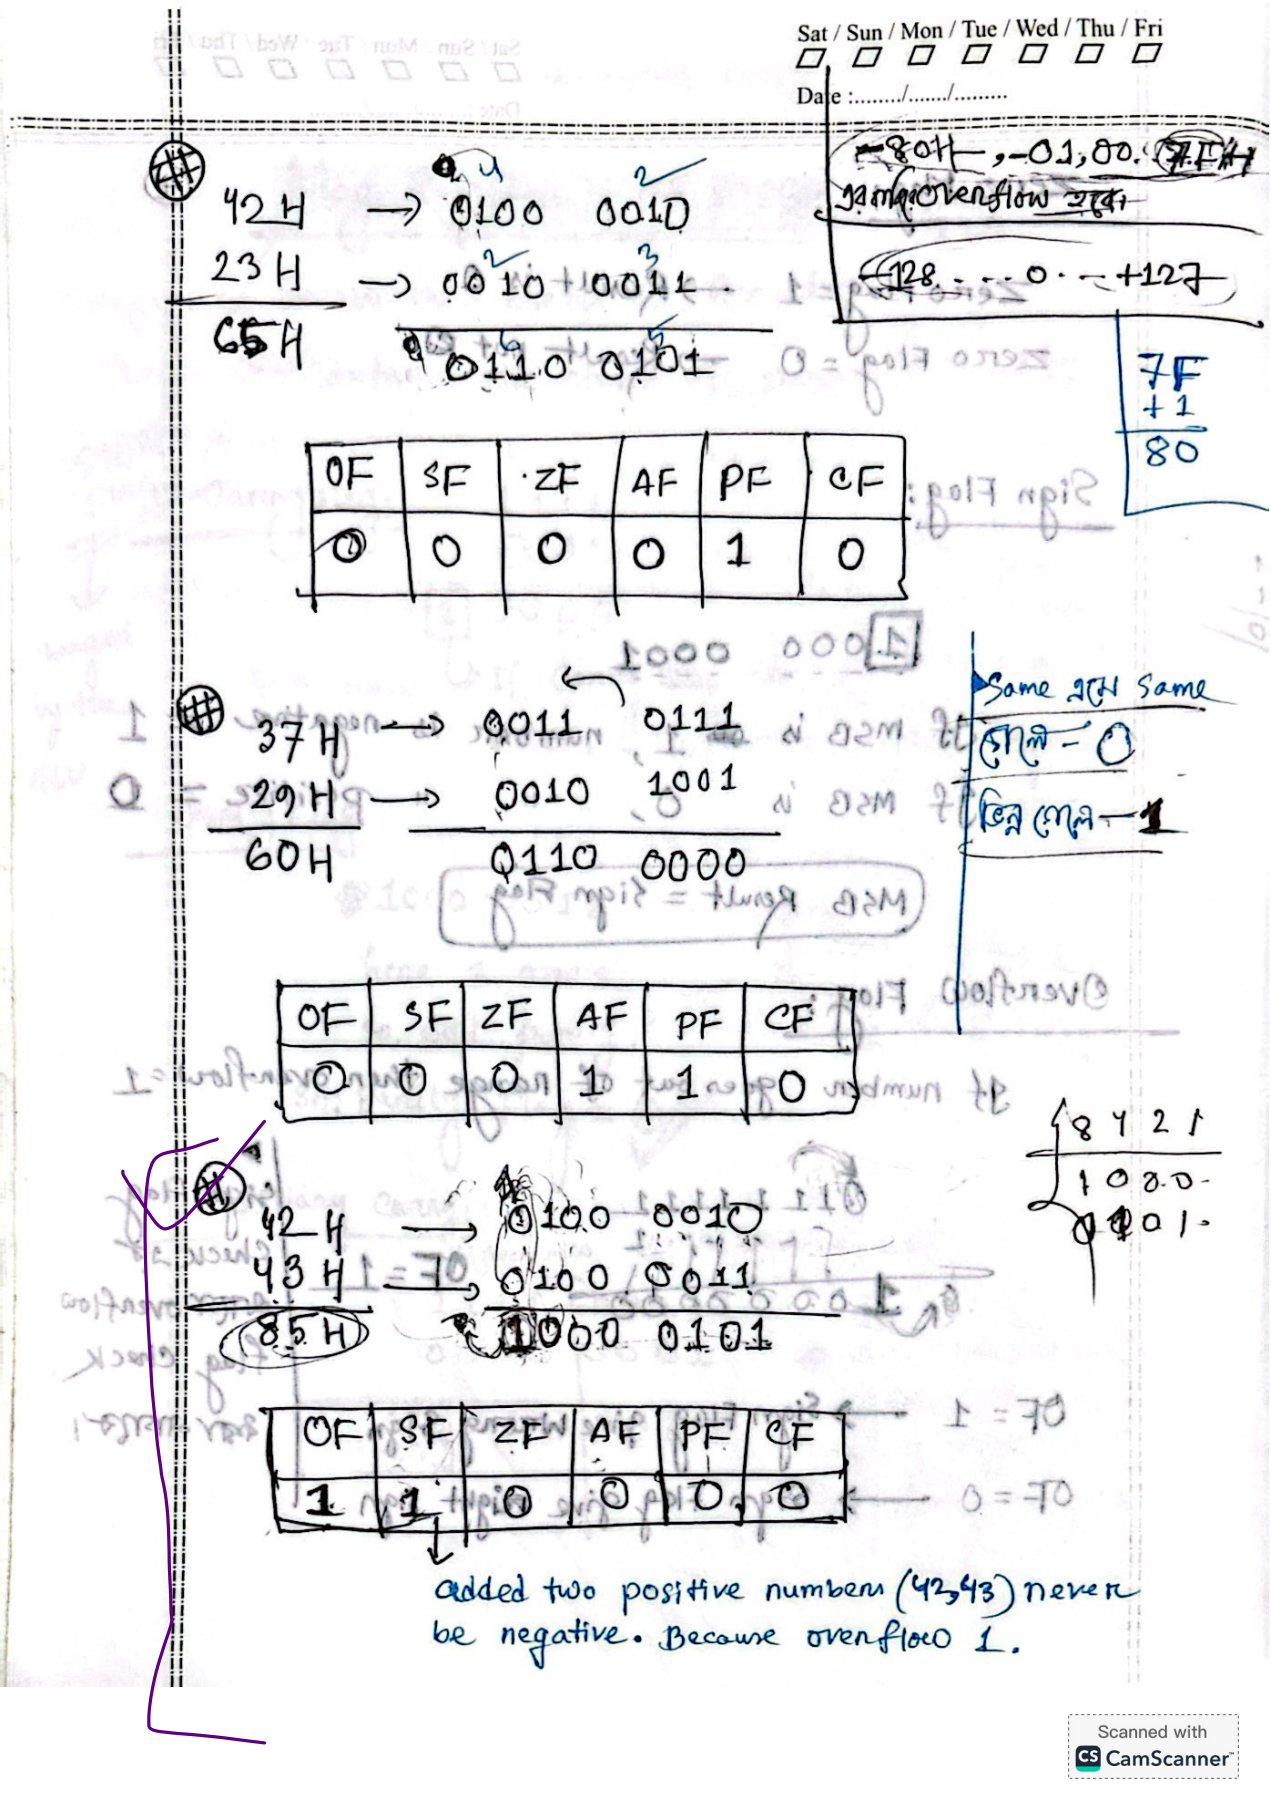 Sat / Sun / Mon / Tue / Wed / Thu / Fri
Date :......../......./.........
-80H, -01, 00. 7FH
overflow হবে
-128 . . . 0 . -- +127
42H → 0100 0010
4 2
23H → 0010 0011
2 3
65H 0110 0101
6 5
7F
+1
80
OF SF ZF AF PF CF
0 0 0 0 1 0
37H → 0011 0111
29H → 0010 1001
60H 0110 0000
Same এসে Same
গেলে - 0
ভিন্ন গেলে - 1
OF SF ZF AF PF CF
0 0 0 1 1 0
8 4 2 1
1 0 0 0
0 1 0 1
42H → 0100 0010
43H → 0100 0011
85H 1000 0101
OF SF ZF AF PF CF
1 1 0 0 0 0
added two positive numbers (42,43) never
be negative. Because overflow 1.
Scanned with
CS CamScanner